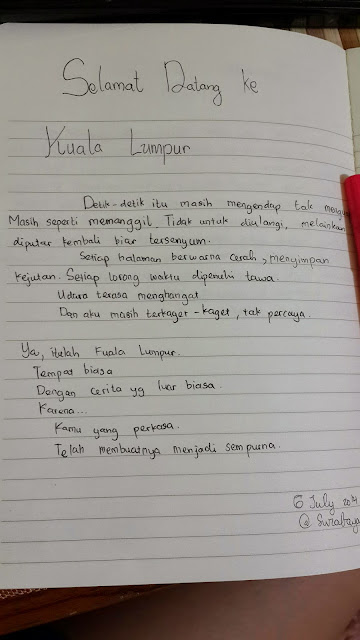 Selamat Datang ke
Kuala Lumpur
Detik-detik itu masih mengendap tak
Masih seperti memanggil. Tidak untuk diulangi, melainkan
diputar kembali biar tersenyum.
Setiap halaman berwarna cerah, menyimpan
kejutan. Setiap lorong waktu dipenuhi tawa.
Udara terasa menghangat
Dan aku masih terkaget-kaget, tak percaya.
Ya, itulah Kuala Lumpur.
Tempat biasa
Dengan cerita yg luar biasa.
Karena...
Kamu yang perkasa.
Telah membuatnya menjadi sempurna.
6 July
@ Surabaya